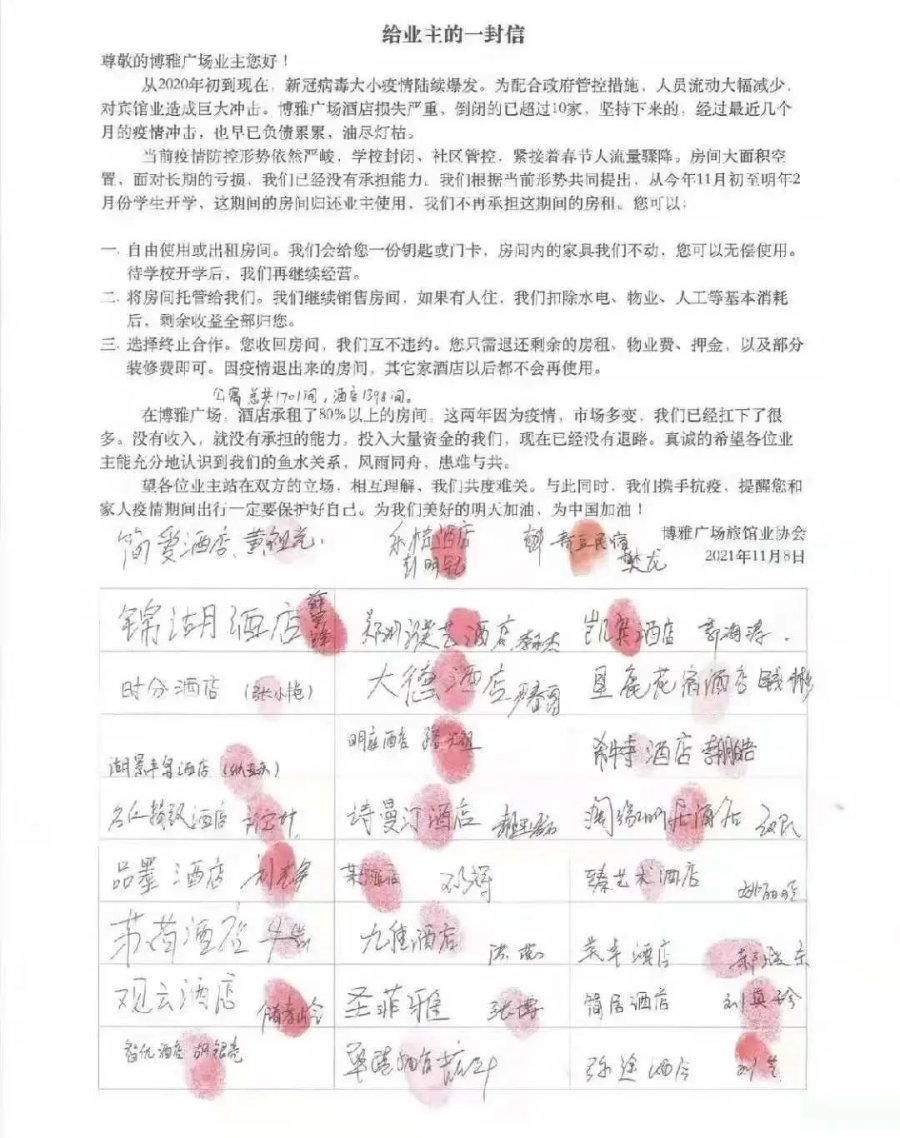 给业主的一封信
尊敬的博雅广场业主您好！
从2020年初到现在，新冠病毒大小疫情陆续爆发。为配合政府管控措施，人员流动大幅减少，
对宾馆业造成巨大冲击。博雅广场酒店损失严重，倒闭的已超过10家，坚持下来的，经过最近几个
月的疫情冲击，也早已负债累累，油尽灯枯。
当前疫情防控形势依然严峻，学校封闭、社区管控，紧接着春节人流量骤降。房间大面积空
置，面对长期的亏损，我们已经没有承担能力。我们根据当前形势共同提出，从今年11月初至明年2
月份学生开学，这期间的房间归还业主使用，我们不再承担这期间的房租。您可以：
一. 自由使用或出租房间。我们会给您一份钥匙或门卡，房间内的家具我们不动，您可以无偿使用。
待学校开学后，我们再继续经营。
二. 将房间托管给我们。我们继续销售房间，如果有人住，我们扣除水电、物业、人工等基本消耗
后，剩余收益全部归您。
三. 选择终止合作。您收回房间，我们互不违约。您只需退还剩余的房租、物业费、押金，以及部分
装修费即可。因疫情退出来的房间，其它家酒店以后都不会再使用。
公寓总共1701间，酒店1398间。
在博雅广场，酒店承租了80%以上的房间，这两年因为疫情，市场多变，我们已经扛下了很
多。没有收入，就没有承担的能力，投入大量资金的我们，现在已经没有退路。真诚的希望各位业
主能充分地认识到我们的鱼水关系，风雨同舟，患难与共。
望各位业主站在双方的立场，相互理解、我们共度难关。与此同时，我们携手抗疫，提醒您和
家人疫情期间出行一定要保护好自己。为我们美好的明天加油，为中国加油！
博雅广场旅馆业协会
2021年11月8日
简爱酒店 黄祖亮 酒店 民宿 樊龙
锦湖酒店 酒店 凯 酒店
时分酒店 （张小艳） 大德酒店 花宿酒店
湖景 酒店 明庭酒店 酒店
酒店 诗曼汀酒店 酒店
品墨酒店 臻艺术酒店
酒店 九佳酒店 酒店
观云酒店 圣菲雅 张 简居酒店 刘
智优酒店 弥途酒店 刘